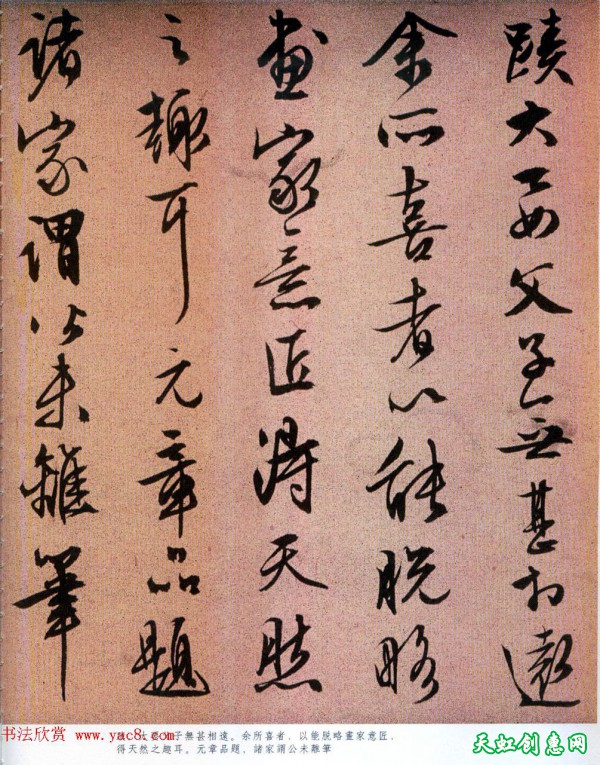 蹟大要父子無甚相遠
余所喜者以能脱略
畫家意匠得天然
之趣耳元章品題
諸家謂公未離筆
大要父子無甚相遠。余所喜者，以能脱略畫家意匠，
得天然之趣耳。元章品題，諸家謂公未離筆
书法欣赏 www.yac8.com
天虹创意网